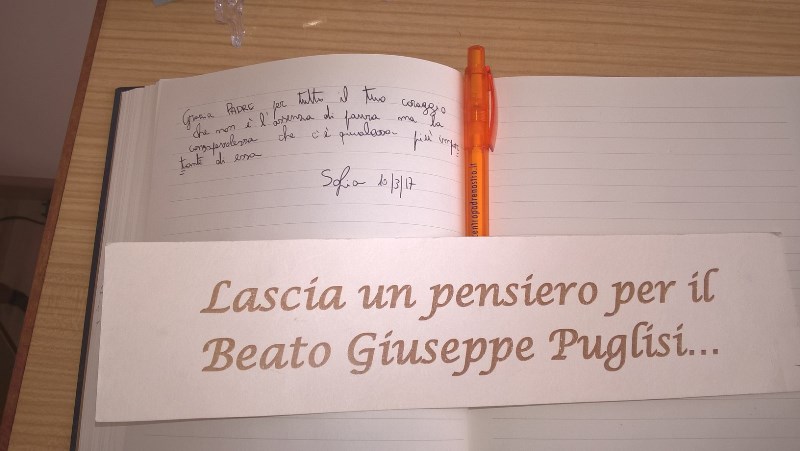 Grazie PADRE per tutto il tuo coraggio
che non è l'assenza di paura ma la
consapevolezza che c'è qualcosa più impor-
tante di essa
Sofia 10/3/17
entropadrenostro.it
Lascia un pensiero per il
Beato Giuseppe Puglisi...